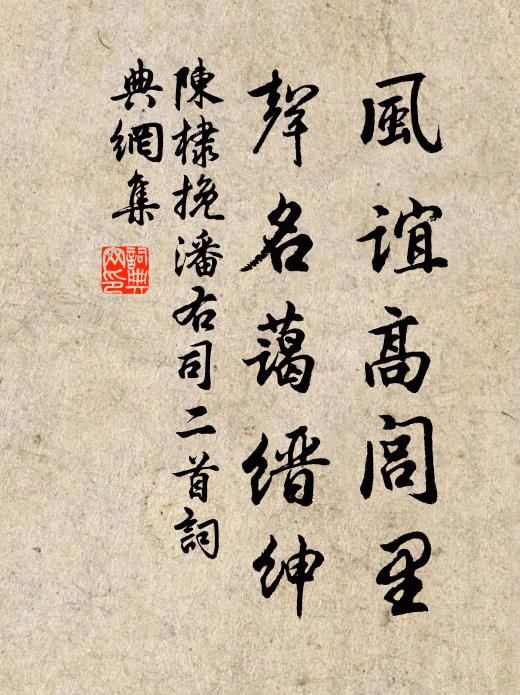 風誼高閭里
聲名藹縉紳
陳棣挽潘右司二首詞
典網集
詞典
文印